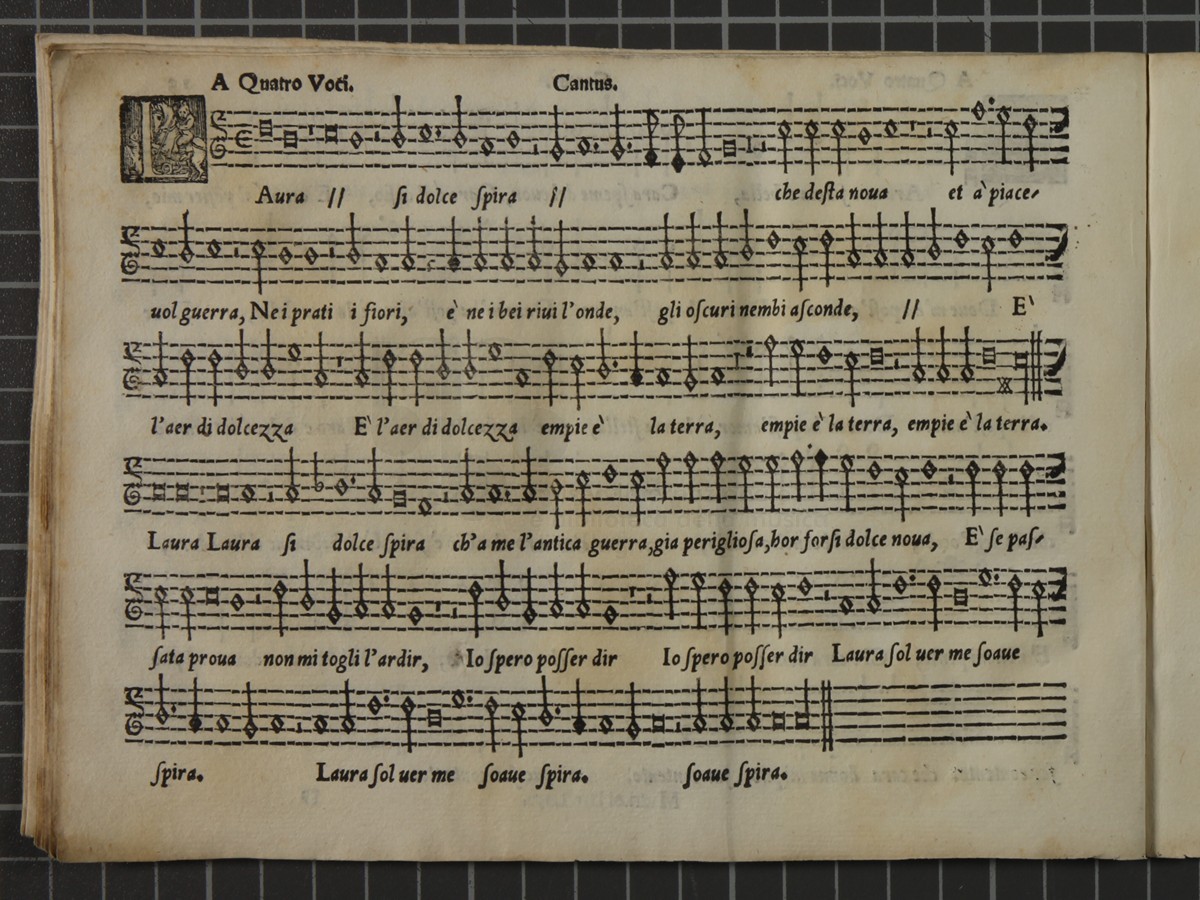 A Quatro Voci. Cantus.
L Aura // ſi dolce ſpira // che deſta noua et à piace-
uol guerra, Ne i prati i fiori, è ne i bei riui l'onde, gli oſcuri nembi aſconde, // E'
l'aer di dolcezza E' l'aer di dolcezza empie è la terra, empie è la terra, empie è la terra.
Laura Laura ſi dolce ſpira ch'a me l'antica guerra,gia periglioſa,hor forſi dolce noua, E' ſe paſ-
ſata proua non mi togli l'ardir, Io ſpero poſſer dir Io ſpero poſſer dir Laura ſol uer me ſoaue
ſpira. Laura ſol uer me ſoaue ſpira. ſoaue ſpira.